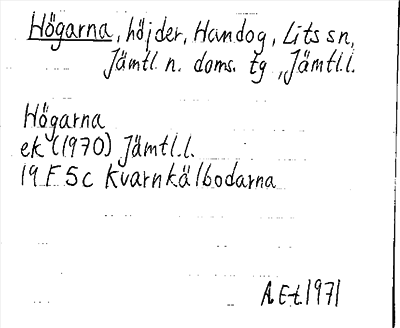 Högarna, höjder, Handog, Lits sn,
Jämtl. n. doms. tg, Jämtl.l.
Högarna
ek (1970) Jämtl.l.
19 F 5 c Kvarnkälbodarna
A.E-t. 1971